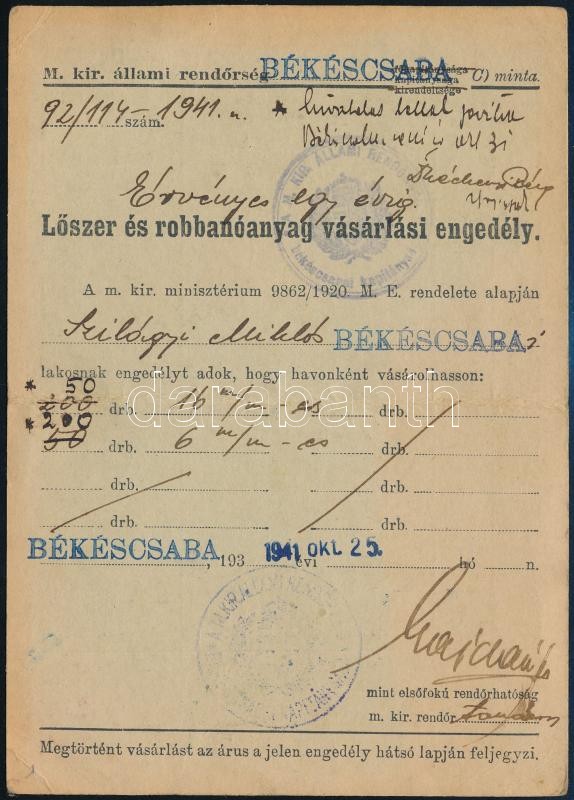 M. kir. állami rendőrség BÉKÉSCSABA kapitánysága C) minta.
kirendeltsége
92/114-1941. n. szám.
* hivatalos
Érvényes egy évig.
Lőszer és robbanóanyag vásárlási engedély.
A m. kir. minisztérium 9862/1920. M. E. rendelete alapján
Szilágyi Miklós BÉKÉSCSABAi
lakosnak engedélyt adok, hogy havonként vásárolhasson:
* 50
200 drb. 16 m/m-es drb.
* 200
50 drb. 6 m/m-es drb.
drb. drb.
drb. drb.
BÉKÉSCSABA, 193 1941 OKT 25. évi hó n.
mint elsőfokú rendőrhatóság
m. kir. rendőr
Megtörtént vásárlást az árus a jelen engedély hátsó lapján feljegyzi.
darabanth